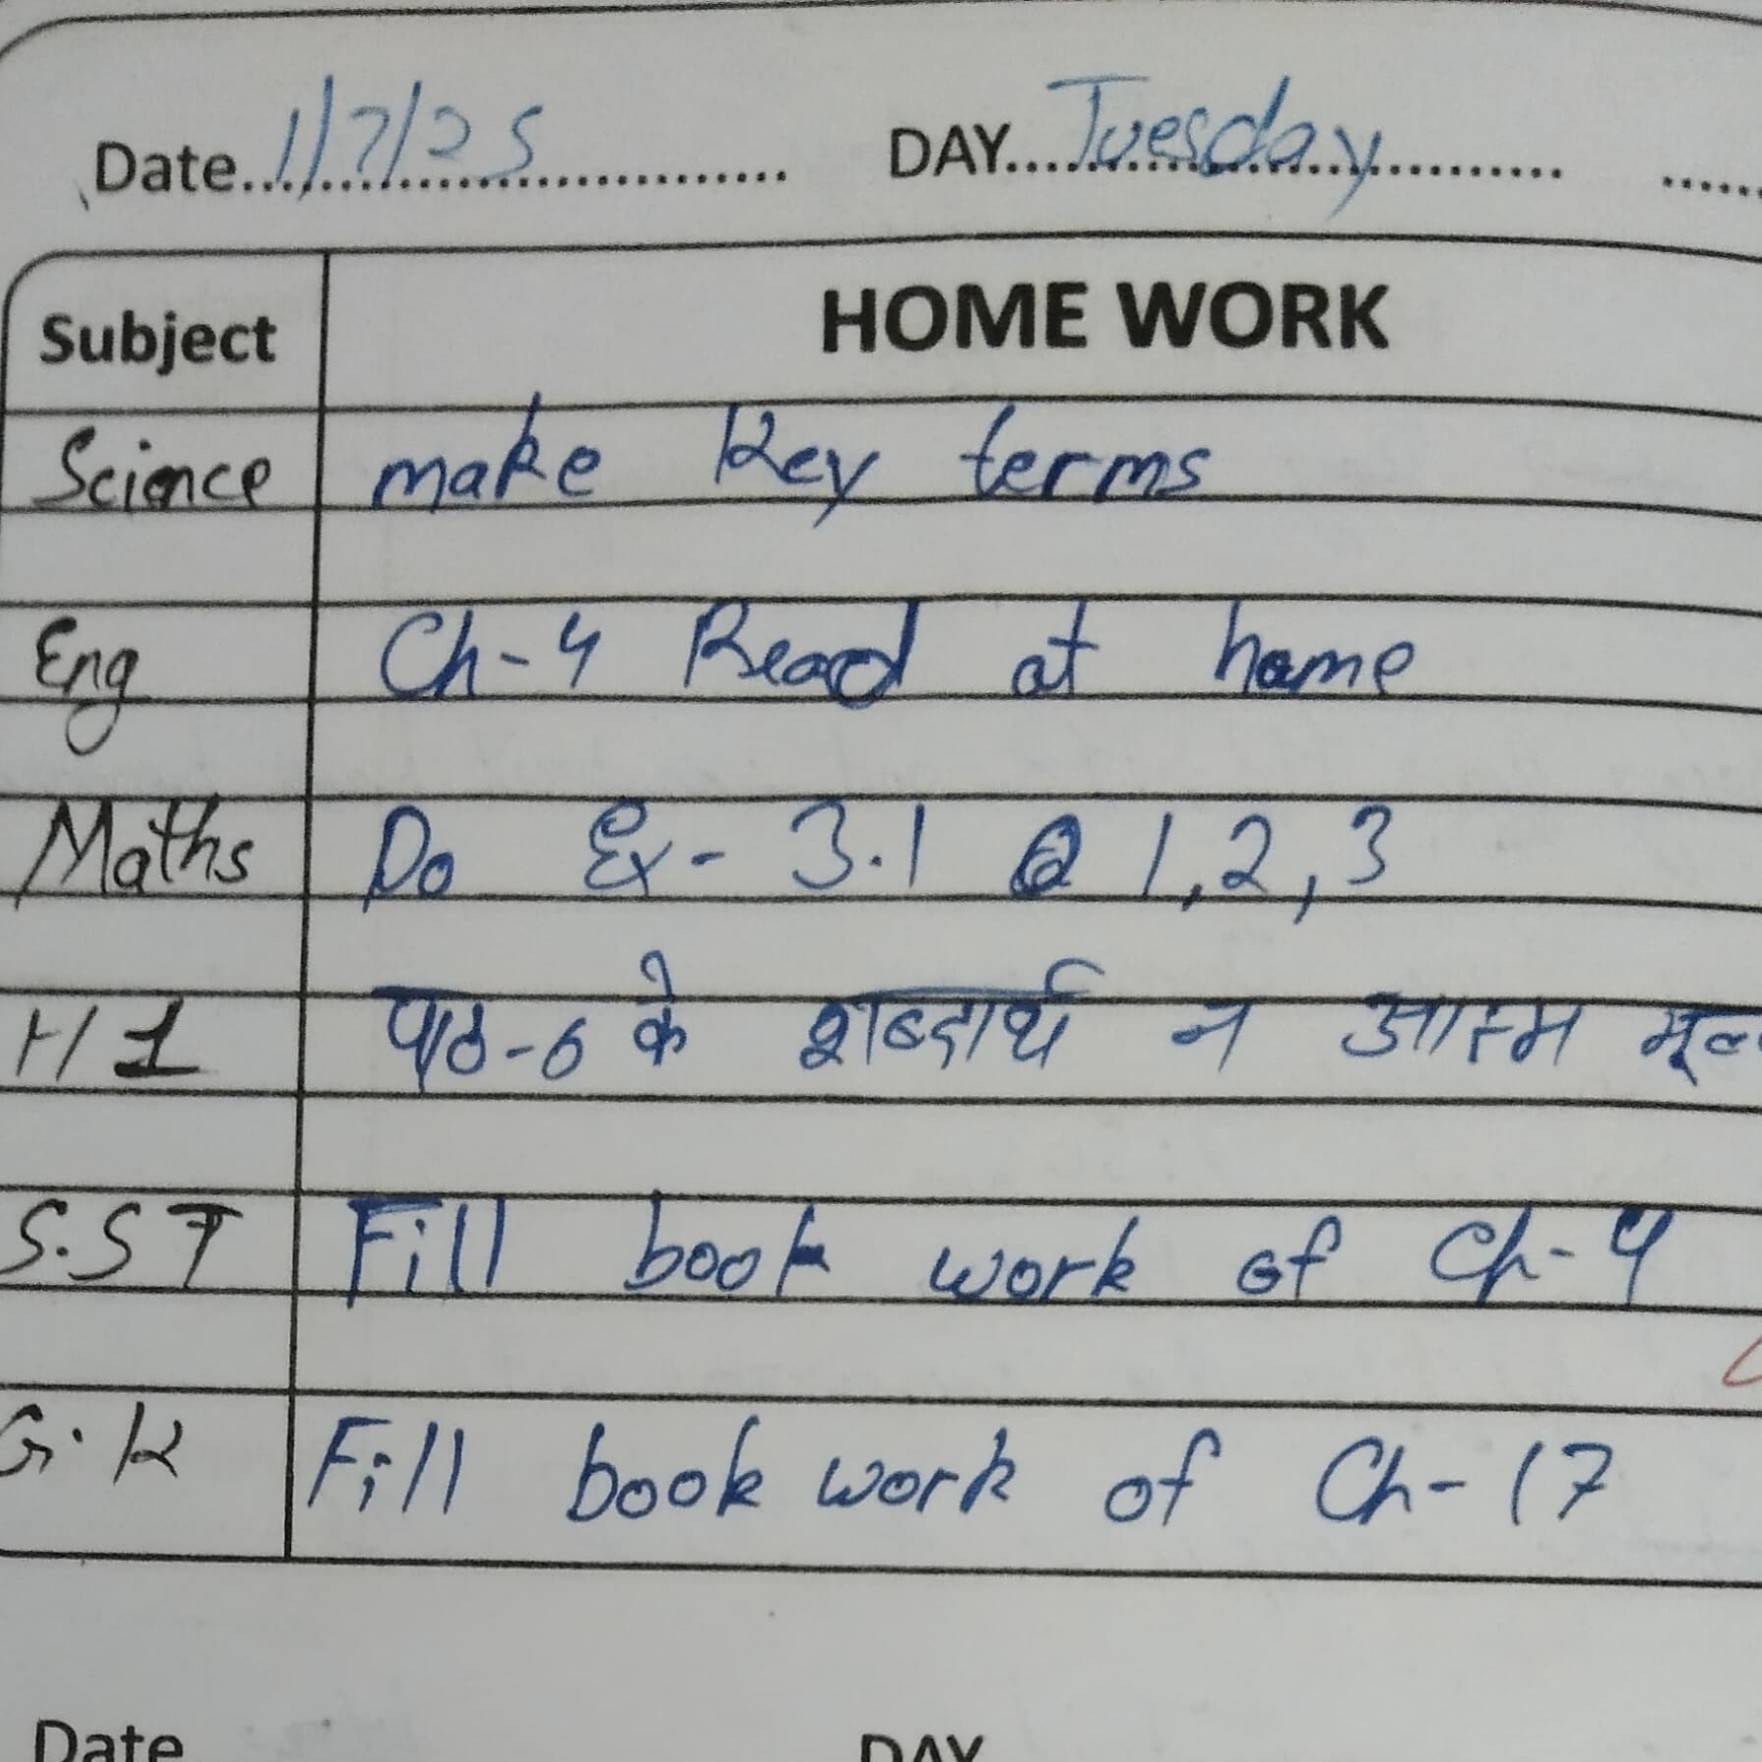 Date 1/7/25 DAY Tuesday
Subject HOME WORK
Science make key terms
Eng Ch-4 Read at home
Maths Do Ex- 3.1 Q 1,2,3
H1 पाठ-6 के शब्दार्थ न आत्म
S.ST Fill book work of Ch-4
G.K Fill book work of Ch-17
Date DAY